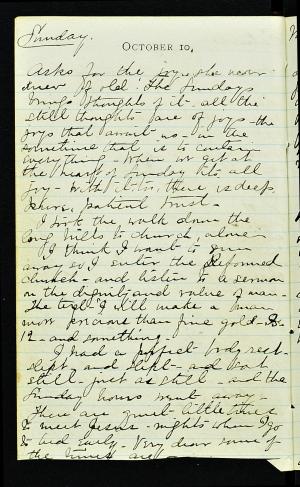 Sunday.
October 10,
Asks for the joy she never
knew of old! The Sunday
brings thoughts of it - all the
still thoughts are of joys - the
joys that await us - in the
sometime that is to contain
everything - when we get at
the heart of Sunday its all
joy - with it too, there is deep,
pure, patient trust -
I took the walk down the
long hills to church, alone -
I think I want to
away so I enter the Reformed
church - and listen to a sermon
on the dignity and value of man -
The text "I will make a man
more precious than fine gold - Is.
12 - and something -
I had a perfect body rest -
slept and slept - and sat
still - just as still - and the
Sunday hours went away -
There are quiet little times
to meet Jesus - nights when I go
to bed early - Very dear some of
the times are -